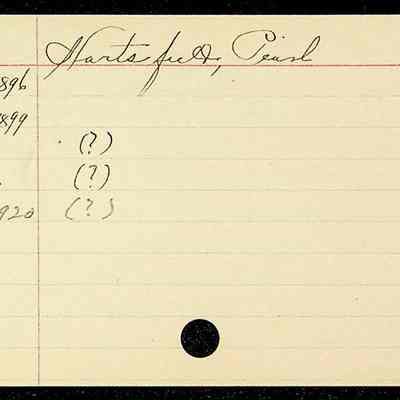 Hartsfield, Pearl
896
899
(?)
(?)
920 (?)